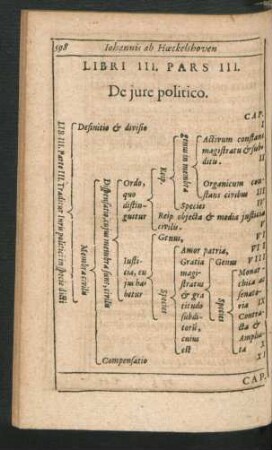 198 Iohannis ab Hœckelshoven
LIBRI III. PARS III.
De jure politico.
CAP.
LIB. III. Parte III. Traditur Ius politici in specie dicti
Definitio & divisio I
Membra civilis
Dispensatio, cujus membra sunt, civilis
Ordo, quo distinguitur
Reip.
genus in membra
Activum constans magistratu & subditu. II
Organicum constans civibus III
Species IV
Reip. objecta & media justitiæ civilis. V
Justitia, cujus habetur
Genus, VI
Species
Amor patria, VII
Gratia magistratus & gratitudo subditorũ, cuius est
Genus VIII
Species
Monarchica ad senatoria IX
Contracta & X
Ampliata XI
Compensatio
CAP.